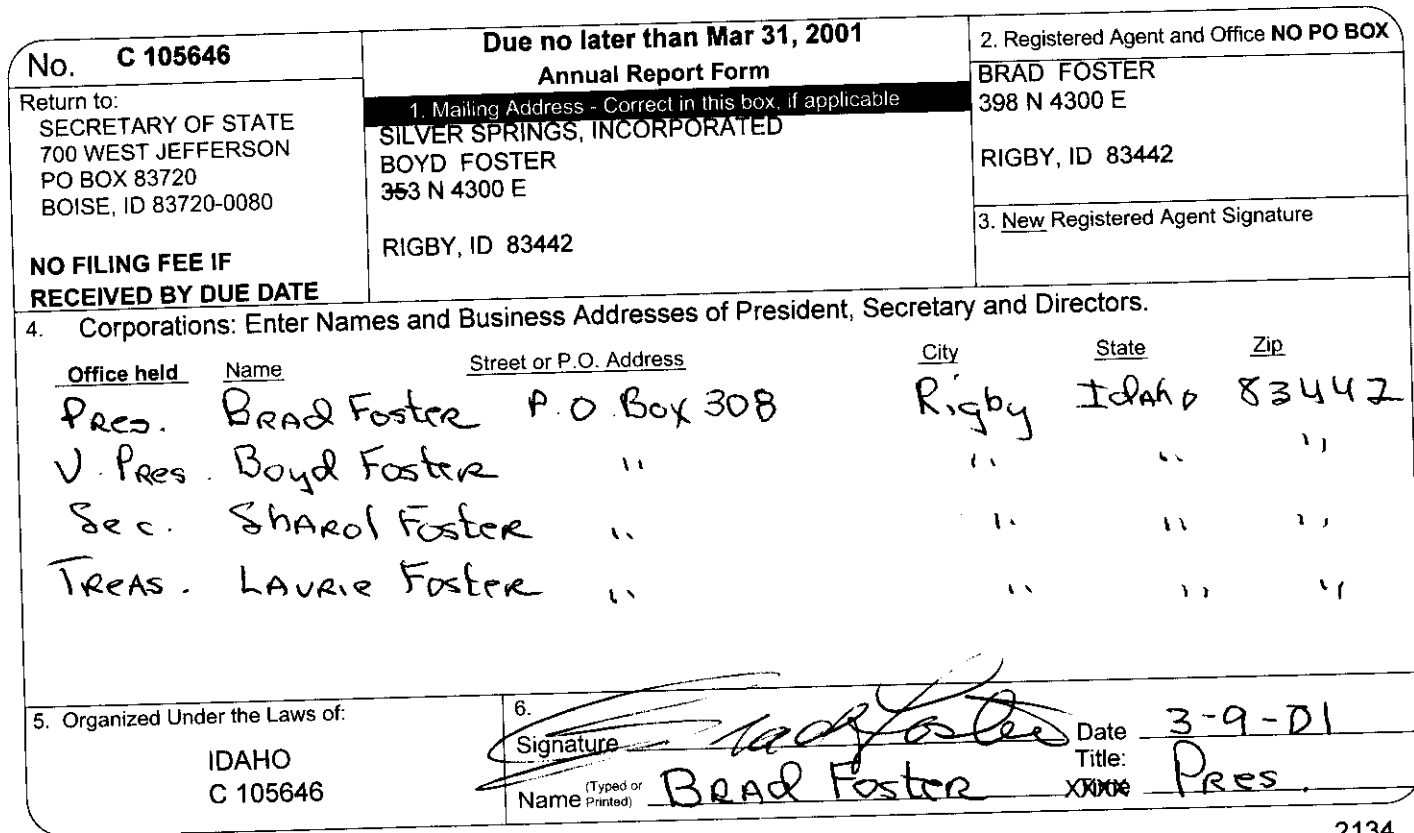 No. C 105646
Return to:
SECRETARY OF STATE
700 WEST JEFFERSON
PO BOX 83720
BOISE, ID 83720-0080
NO FILING FEE IF
RECEIVED BY DUE DATE
Due no later than Mar 31, 2001
Annual Report Form
1. Mailing Address - Correct in this box, if applicable
SILVER SPRINGS, INCORPORATED
BOYD FOSTER
353 N 4300 E
RIGBY, ID 83442
2. Registered Agent and Office NO PO BOX
BRAD FOSTER
398 N 4300 E
RIGBY, ID 83442
3. New Registered Agent Signature
4. Corporations: Enter Names and Business Addresses of President, Secretary and Directors.
Office held Name Street or P.O. Address City State Zip
Pres. Brad Foster P.O. Box 308 Rigby Idaho 83442
V. Pres. Boyd Foster " " " "
Sec. Sharol Foster " " " "
Treas. Laurie Foster " " " "
5. Organized Under the Laws of:
IDAHO
C 105646
6.
Signature Brad Foster Date 3-9-01
Name (Typed or Printed) Brad Foster Title: Pres.
2134